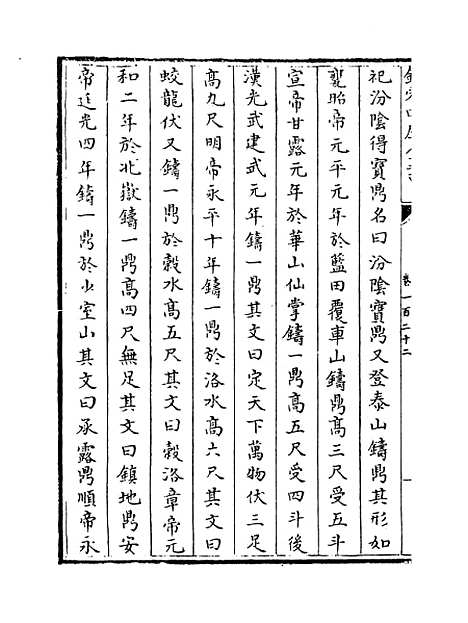 欽定四庫全書
卷一百二十二
祀汾陰得寶鼎名曰汾陰寶鼎又登泰山鑄鼎其形如
甕昭帝元平元年於藍田覆車山鑄鼎高三尺受五斗
宣帝甘露元年於華山仙掌鑄一鼎高五尺受四斗後
漢光武建武元年鑄一鼎其文曰定天下萬物伏三足
高九尺明帝永平十年鑄一鼎於洛水高六尺其文曰
蛟龍伏又鑄一鼎於穀水高五尺其文曰穀洛章帝元
和二年於北嶽鑄一鼎高四尺無足其文曰鎮地鼎安
帝延光四年鑄一鼎於少室山其文曰承露鼎順帝永